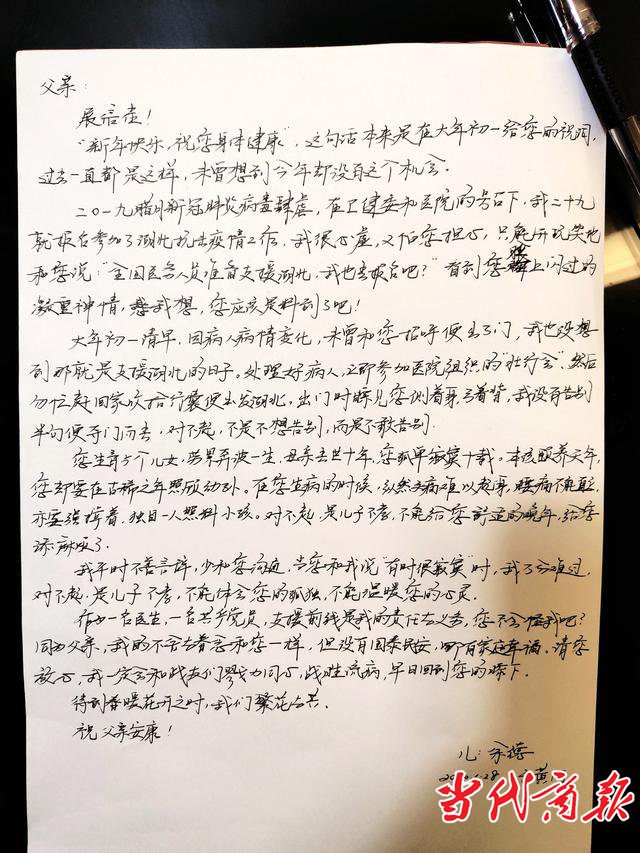 父亲：
展信佳！
“新年快乐，祝您身体健康”，这句话本来是在大年初一给您的祝词，
过去一直都是这样，未曾想到今年却没有这个机会。
二〇一九腊月新冠肺炎病毒肆虐，在卫健委和医院的号召下，我二十九
就报名参加了湖北抗击疫情工作，我很心虚，又怕您担心，只能开玩笑地
和您说：“全国医务人员准备支援湖北，我也去报名吧？”看到您脸上闪过的
凝重神情，我想，您应该是料到了吧！
大年初一清早，因病人病情变化，未曾和您招呼便出了门，我也没想
到那就是支援湖北的日子。处理好病人，立即参加医院组织的“壮行会”，然后
匆忙赶回家收拾行囊便出发湖北。出门时瞟见您侧着身弓着背，我没有告别
半句便夺门而去，对不起，不是不想告别，而是不敢告别。
您生育5个儿女，劳累奔波一生，母亲去世十年，您孤单寂寞十载。本该颐养天年，
您却要在古稀之年照顾幼孙。在您生病的时候，纵然头痛难以起身，腰痛不能直立，
亦要强撑着，独自一人照料小孩。对不起，是儿子不孝，不能给您舒适的晚年，给您
添麻烦了。
我平时不善言辞，少和您沟通，当您和我说“有时很寂寞”时，我十分难过，
对不起，是儿子不孝，不能体会您的孤独，不能温暖您的心灵。
作为一名医生，一名共产党员，支援前线是我的责任与义务，您不会怪我吧？
同为父亲，我的不舍与眷恋和您一样，但没有国泰民安，哪有家庭幸福。请您
放心，我一定会和战友们戮力同心，战胜流病，早日回到您的膝下。
待到春暖花开之时，我们繁花与共。
祝父亲安康！
儿：
当代商报